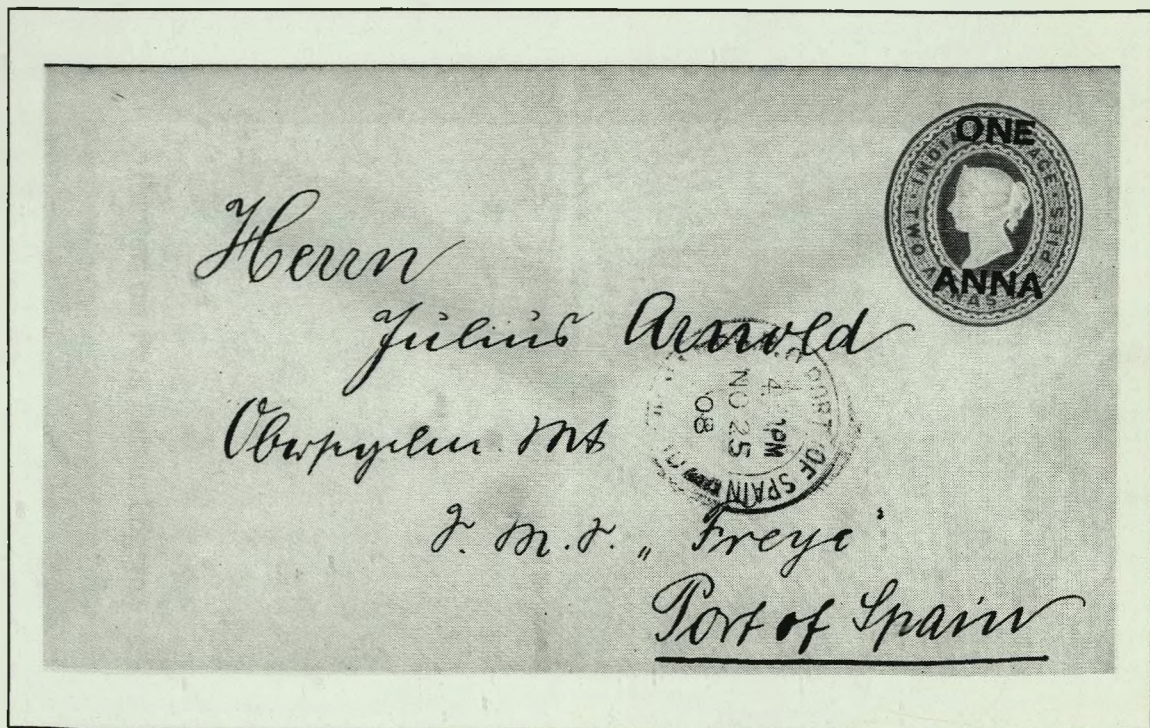 ONE
INDIA POSTAGE
TWO ANNAS SIX PIES
ANNA
Herrn
Julius Arnold
PORT OF SPAIN
4 PM
NO 25
08
S. M. S. „Freya“
Port of Spain